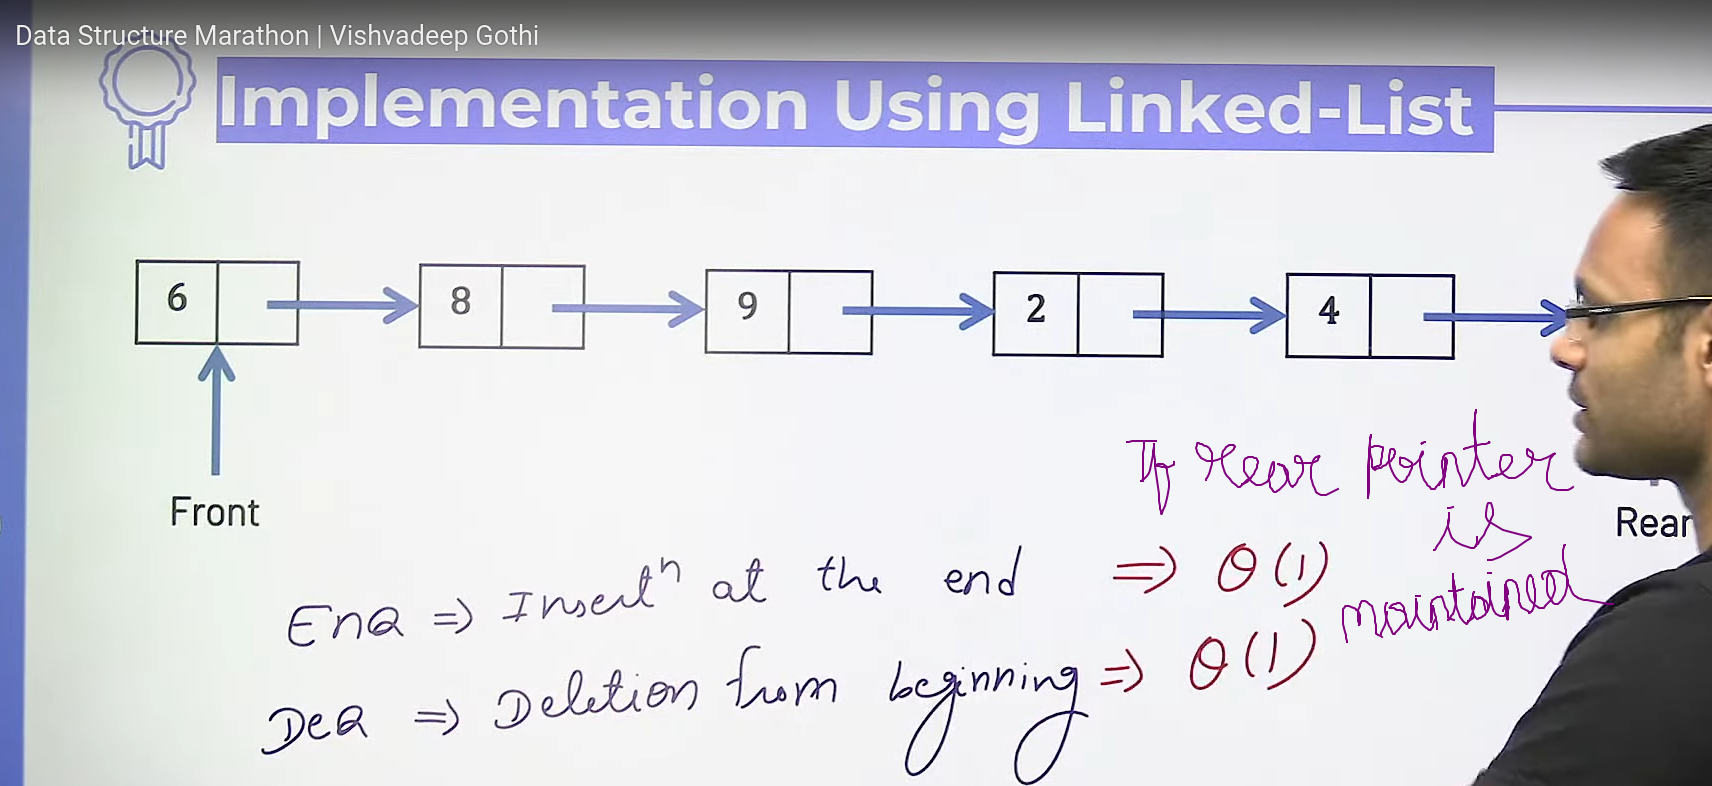 Data Structure Marathon | Vishvadeep Gothi
Implementation Using Linked-List
6 8 9 2 4
If rear pointer
is
maintained
Front
Rear
EnQ => Insertⁿ at the end => θ(1)
DeQ => Deletion from beginning => θ(1)